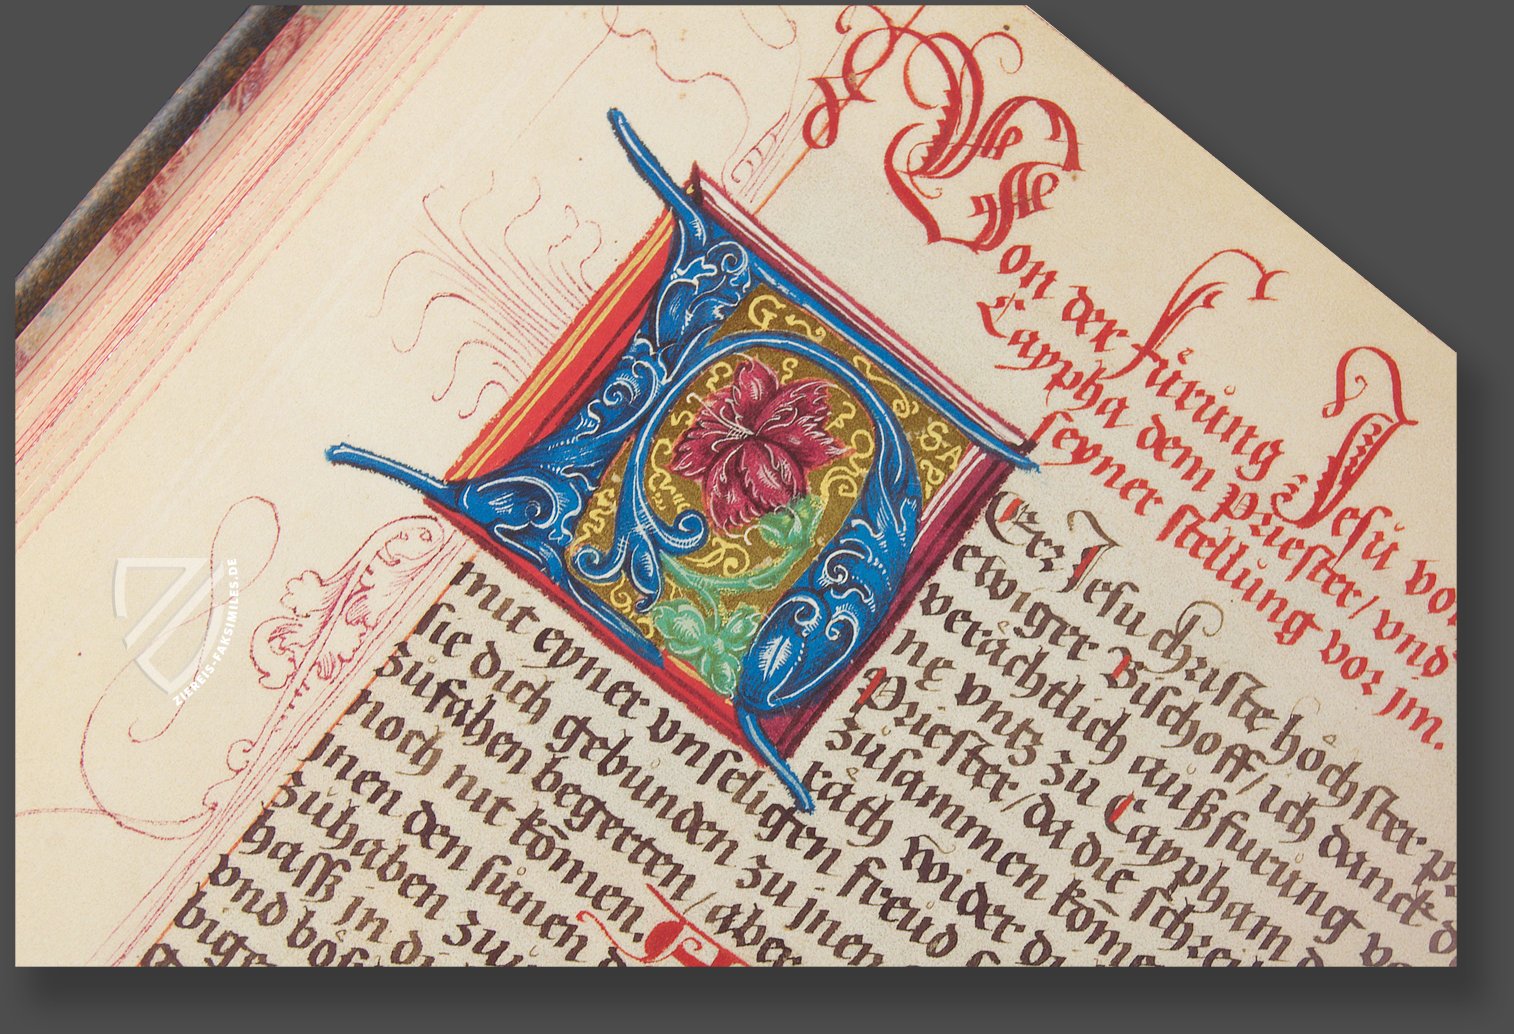 Von der fürüng Jesü vor
Caypha dem Priester/ vnd
seyner stellüng vor jm.
HErr Jesu christe höchster
ewiger Bischoff/ ich danck
verächtlich außfürüng
ne vntz zü Caypham
Priester/ da die
züsammen kōm
räth wider
mit eyner vnseligen freüd
sie dich gebunden zu jnen
züfahen begerten/ aber
noch nit kōmen.
jnen den sünen
zühaben zu
hassz in
vnd
ZIEREIS-FAKSIMILES.DE